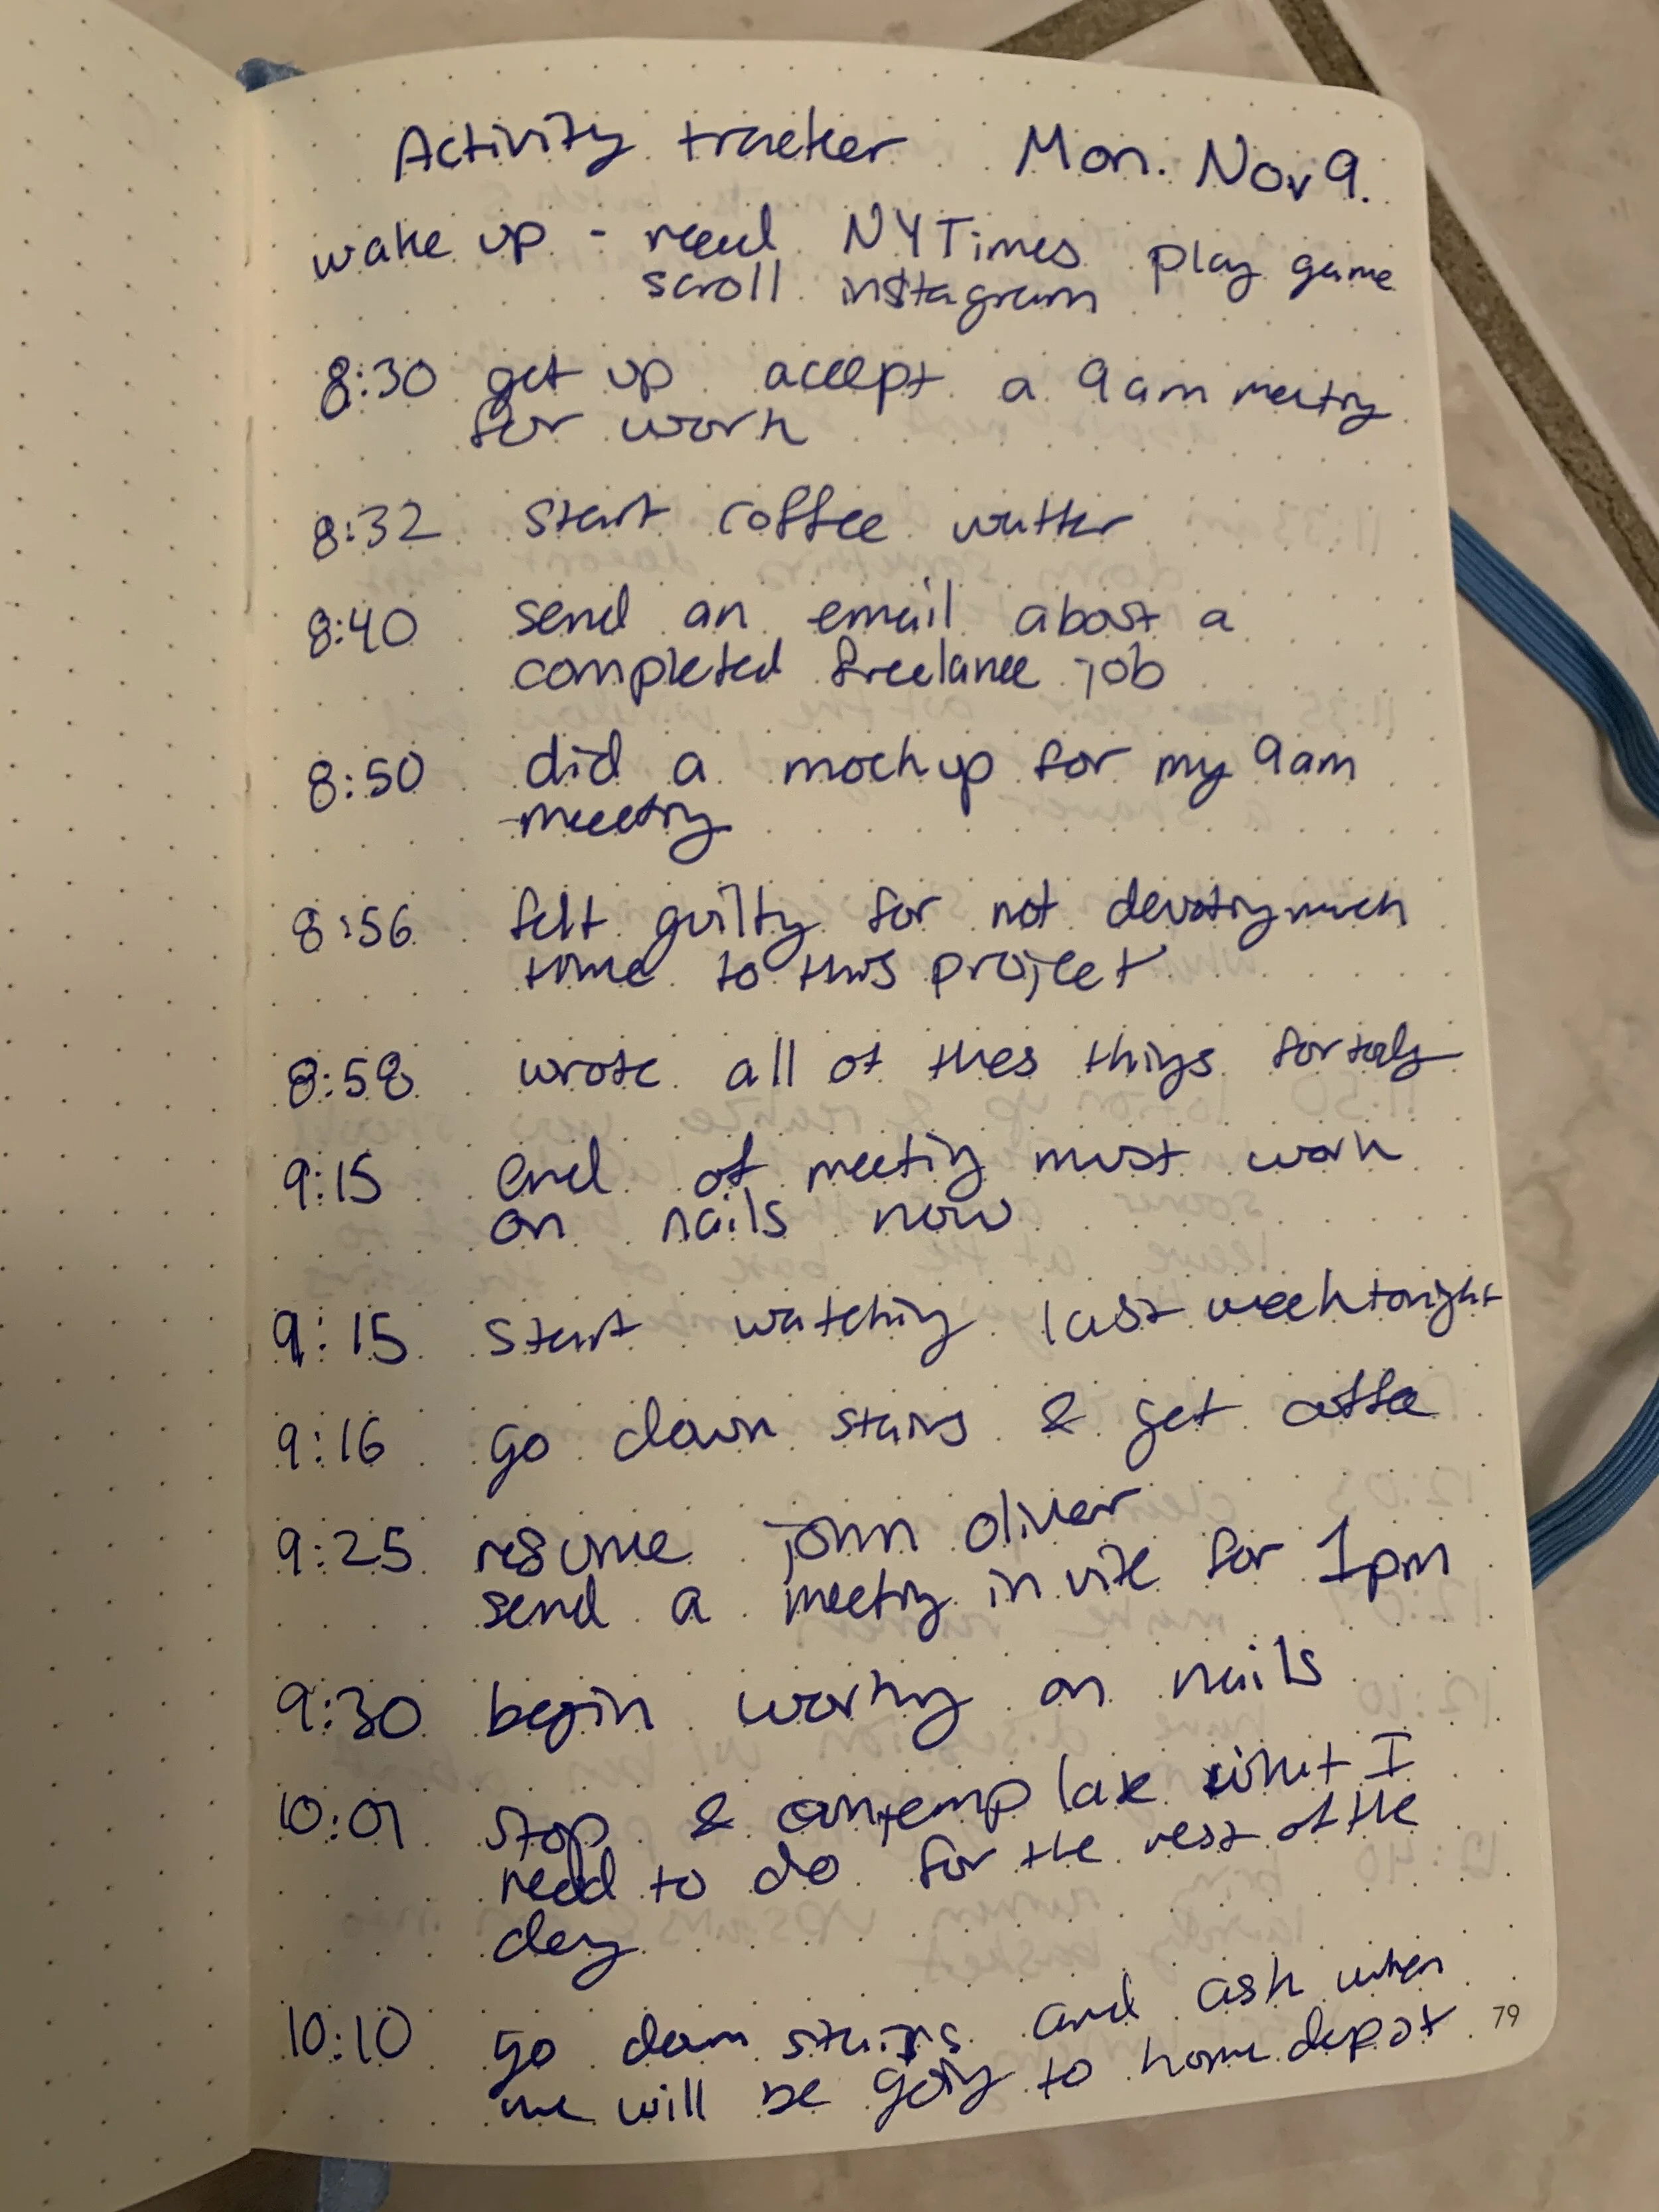 Activity tracker Mon. Nov 9.
wake up - read NYTimes play game
scroll instagram
8:30 get up accept a 9am meeting
for work
8:32 start coffee watter
8:40 send an email about a
completed freelance job
8:50 did a mockup for my 9am
meeting
8:56 felt guilty for not devoting much
time to this project
8:58 wrote all of thes things for
9:15 end of meeting must work
on nails now
9:15 start watching last week tonight
9:16 go down stairs & get coffee
9:25 resume john oliver
send a meeting invite for 1pm
9:30 begin working on nails
10:01 stop & contemplate what I
need to do for the rest of the
day
10:10 go down stairs and ask when
we will be going to home depot
79